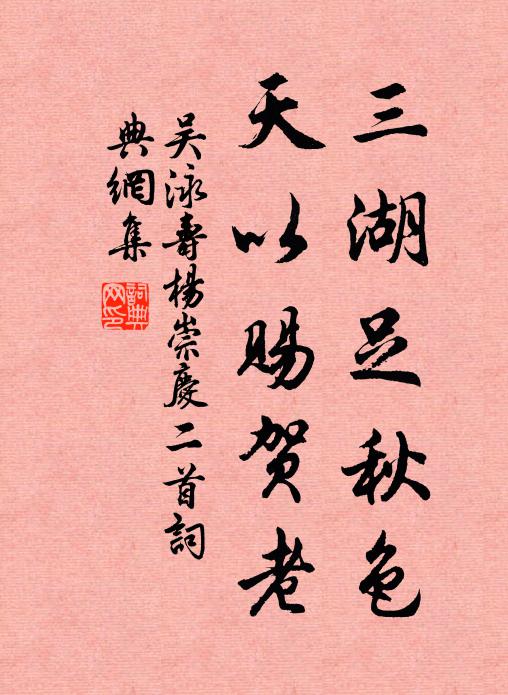 三湖足秋色
天以賜賀老
吳泳壽楊崇慶二首詞
典網集
詞典網印